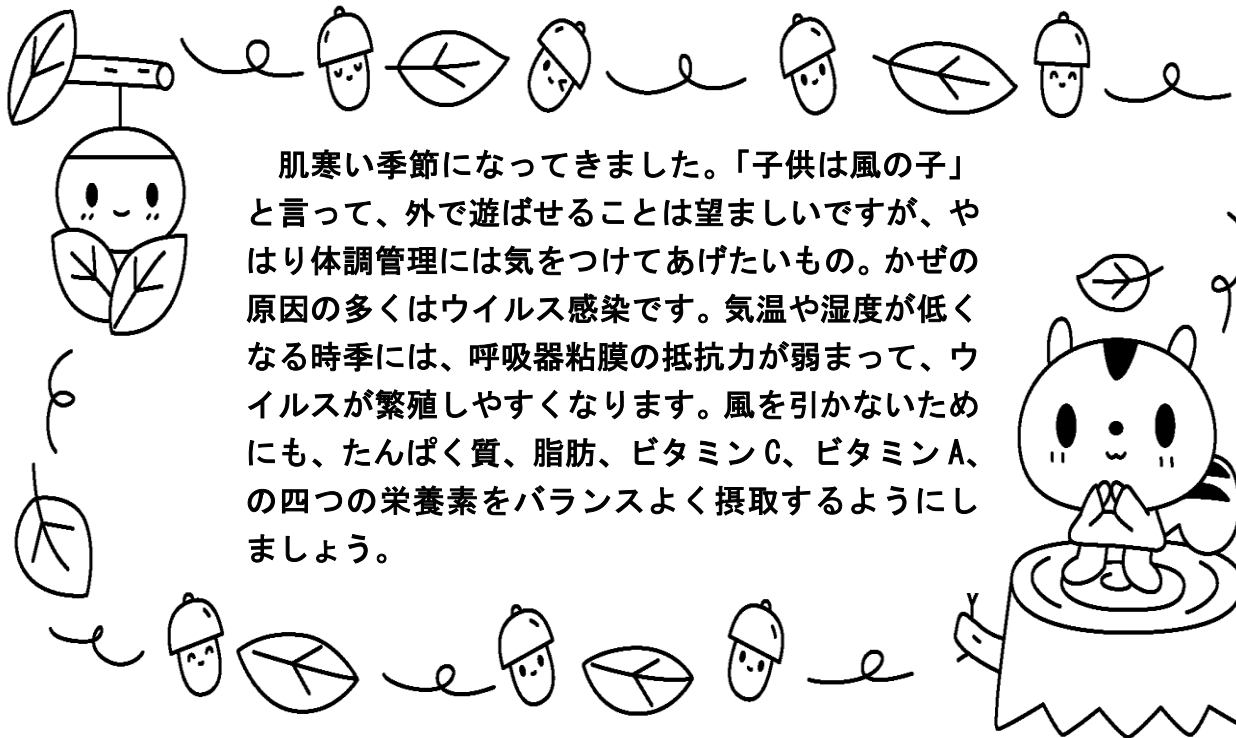 肌寒い季節になってきました。「子供は風の子」
と言って、外で遊ばせることは望ましいですが、や
はり体調管理には気をつけてあげたいもの。かぜの
原因の多くはウイルス感染です。気温や湿度が低く
なる時季には、呼吸器粘膜の抵抗力が弱まって、ウ
イルスが繁殖しやすくなります。風を引かないため
にも、たんぱく質、脂肪、ビタミン C、ビタミン A、
の四つの栄養素をバランスよく摂取するようにし
ましょう。